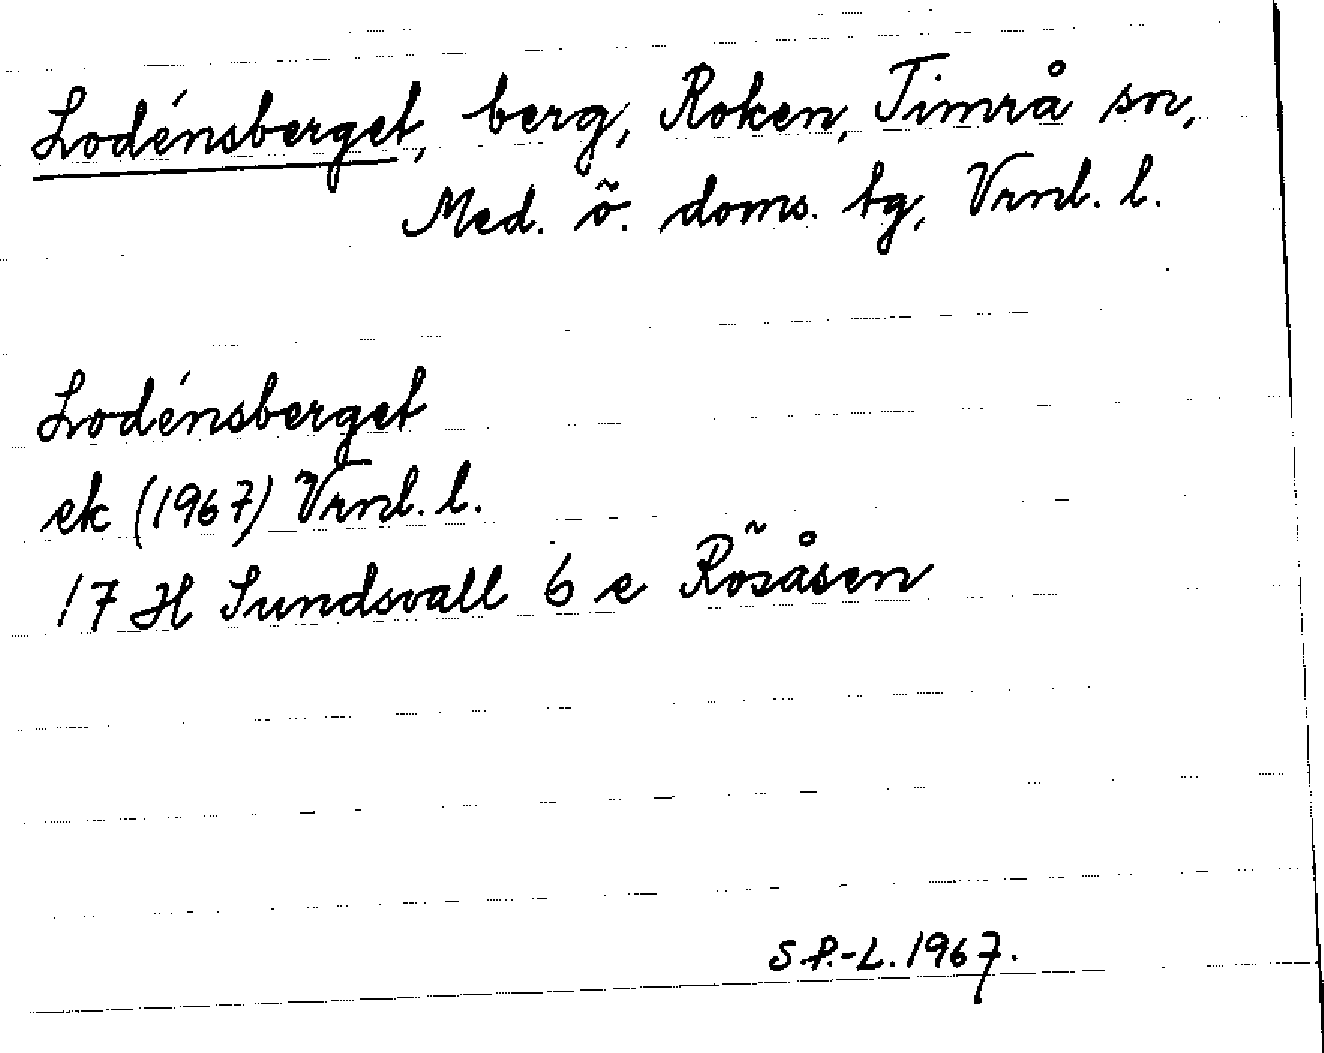 Lodénsberget, berg, Roken, Timrå sn,
Med. ö. doms. tg, Vrnl. l.
Lodénsberget
ek (1967) Vrnl. l.
17 H Sundsvall 6 e Rösåsen
S P.-L. 1967.